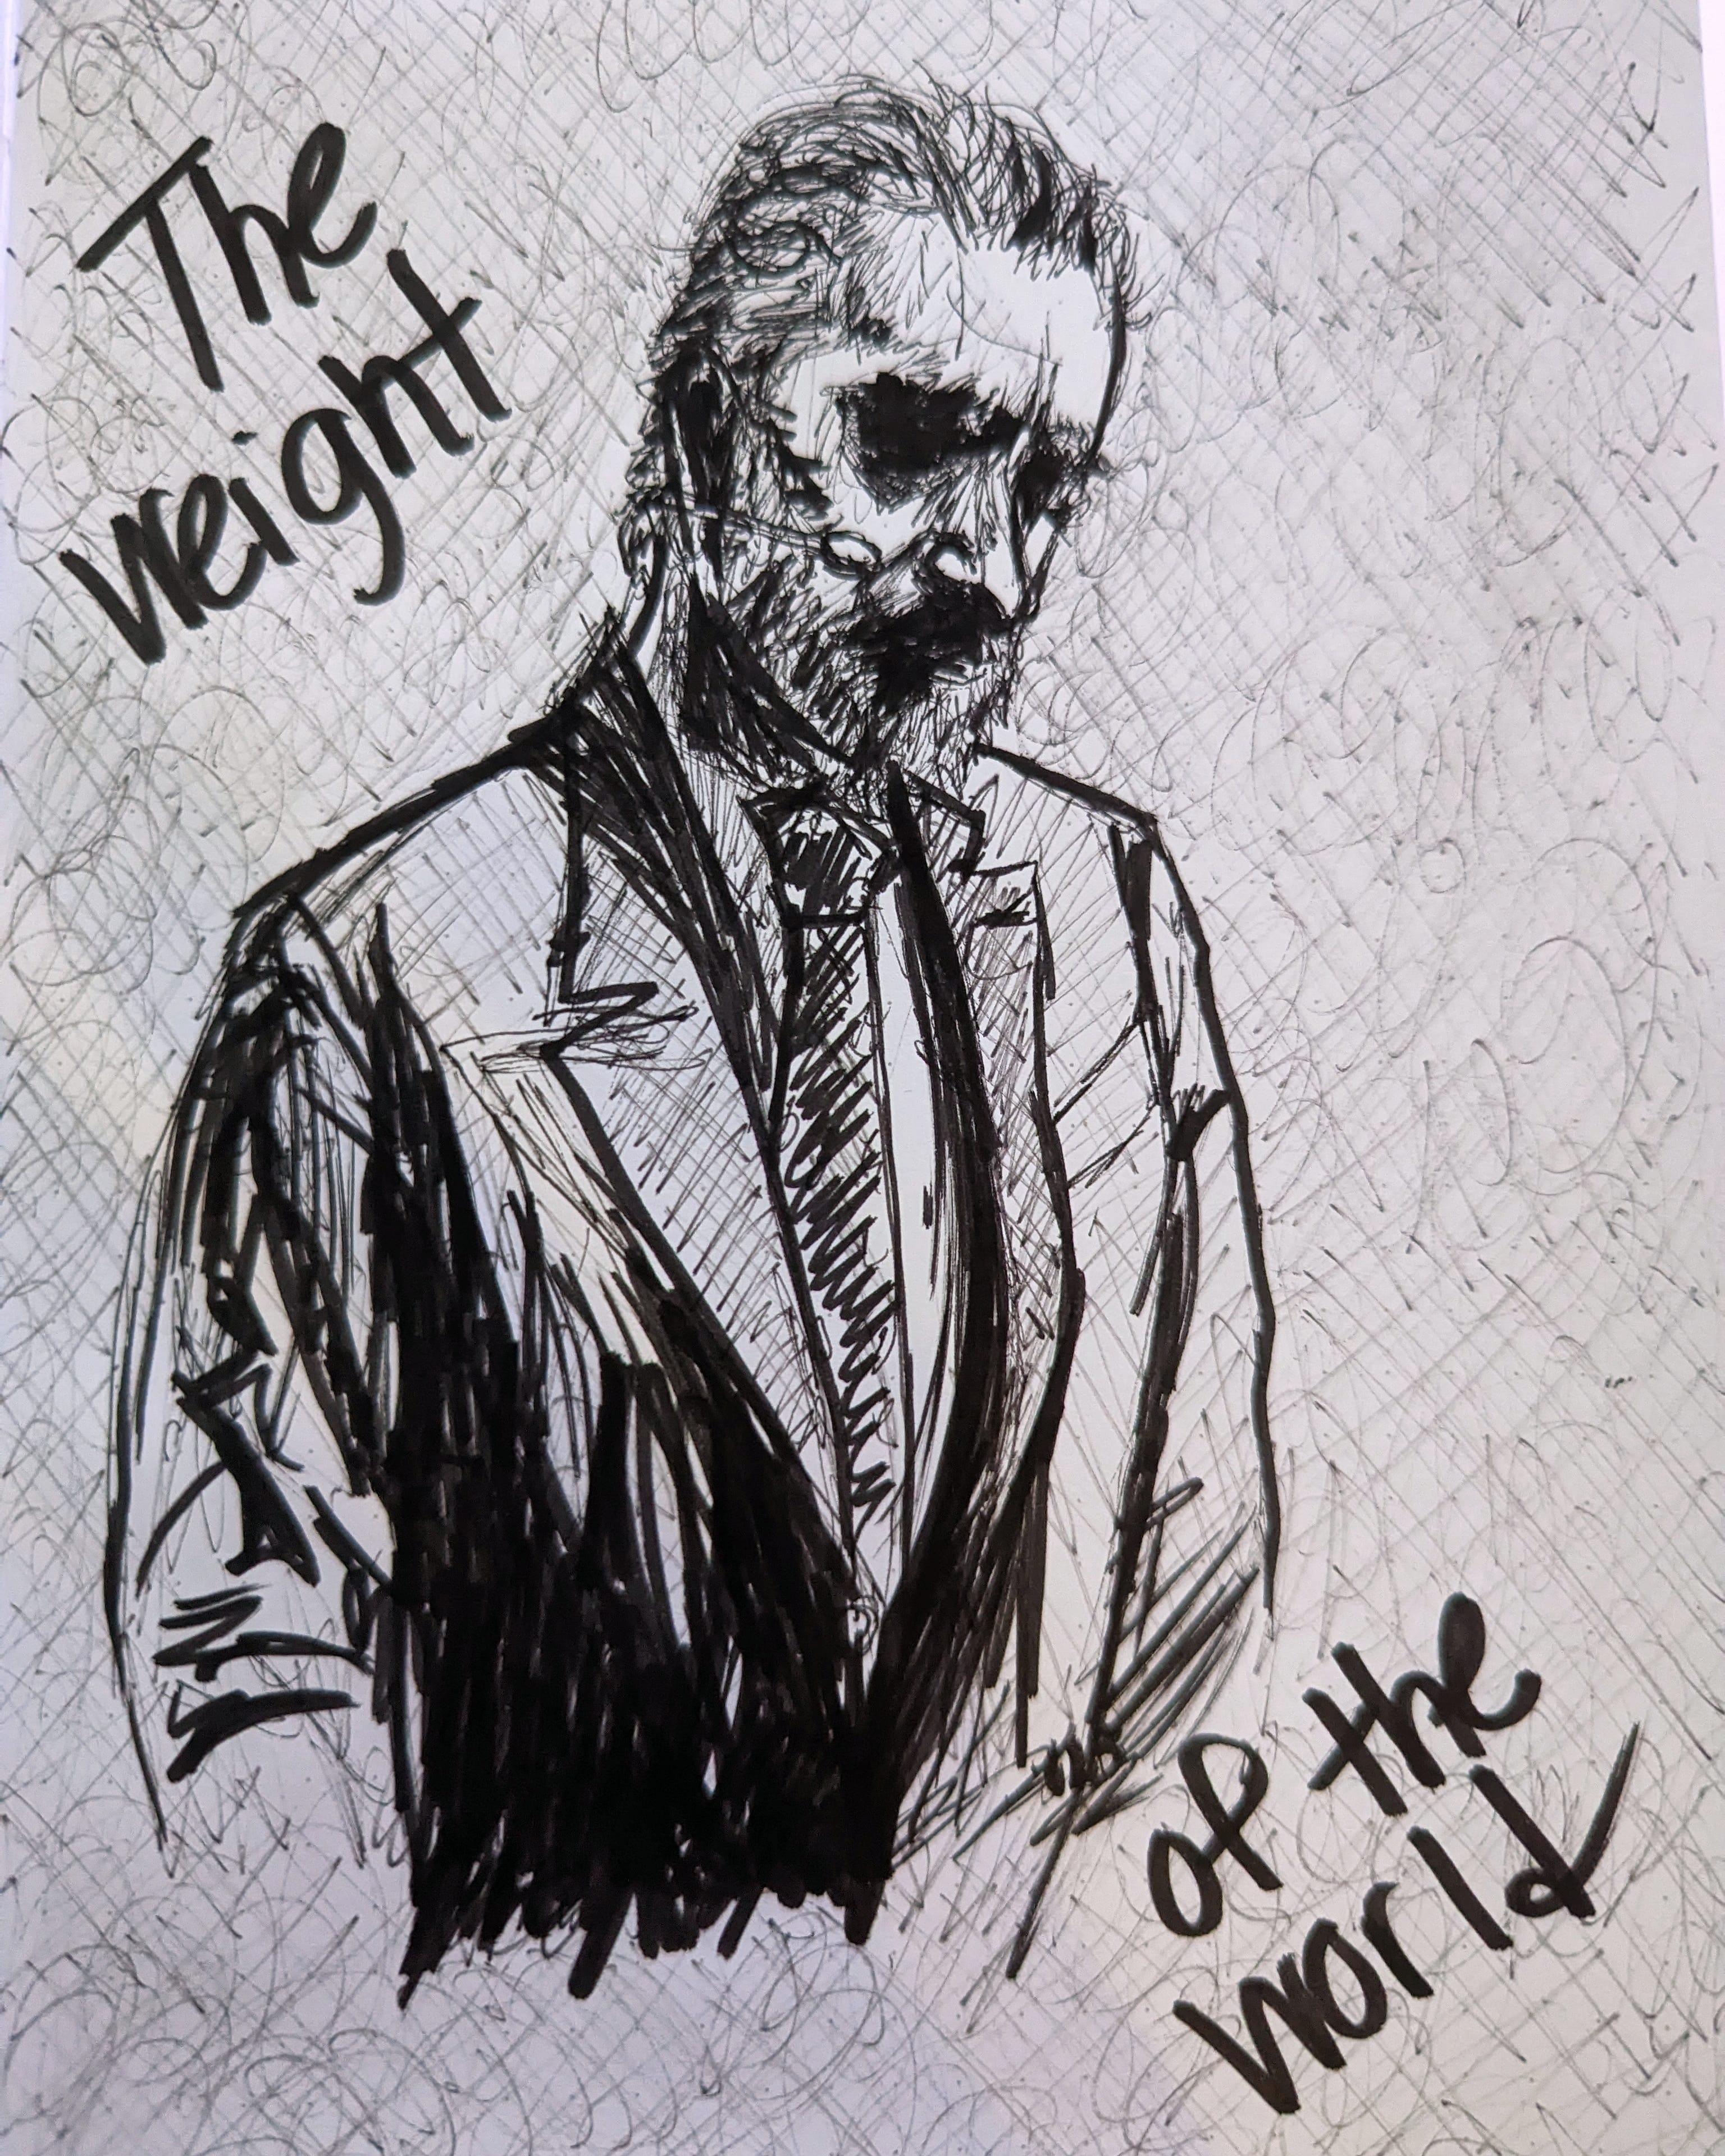 The
weight
of the
world